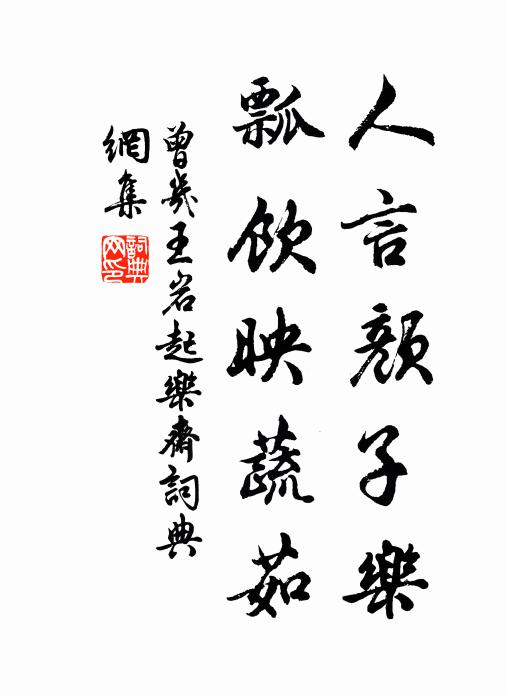 人言顏子樂
瓢飲映蔬茹
曾幾王岩起樂齋詞典
網集
詞典網印